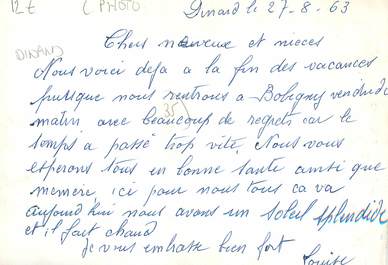 12 E (PHOTO
Dinard le 27-8-63
DINAND
Chers neveux et nieces
Nous voici deja a la fin des vacances
puisque nous rentrons a Bobigny vendredi
matin avec beaucoup de regrets car le
35)
temps a passé trop vite. Nous vous
esperons tous en bonne santé ainsi que
memere, ici pour nous tous ca va
aujourd'hui nous avons un soleil splendide
et il fait chaud
Je vous embrasse bien fort
Louise